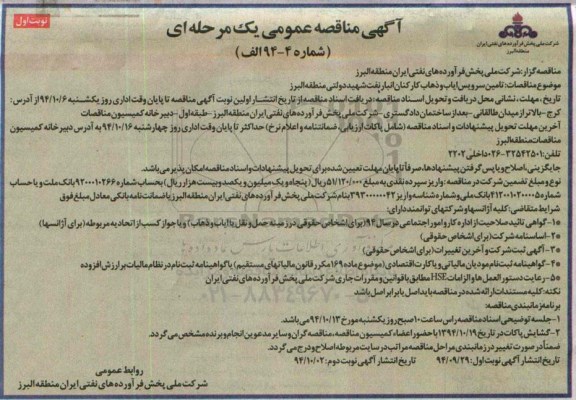 نوبت اول
شرکت ملی پخش فرآورده های نفتی ایران
منطقه البرز
آگهی مناقصه عمومی یک مرحله ای
(شماره ۴-۹۴ الف)
مناقصه گزار: شرکت ملی پخش فرآورده های نفتی ایران منطقه البرز
موضوع مناقصات: تامین سرویس ایاب و ذهاب کارکنان انبار نفت شهید دولتی منطقه البرز
تاریخ، مهلت، نشانی محل دریافت و تحویل اسناد مناقصه: دریافت اسناد مناقصه از تاریخ انتشار اولین نوبت آگهی مناقصه تا پایان وقت اداری روز یکشنبه ۹۴/۱۰/۶ از آدرس:
کرج - بالاتر از میدان طالقانی - بعد از ساختمان دادگستری - شرکت ملی پخش فرآورده های نفتی ایران منطقه البرز - طبقه اول - دبیرخانه کمیسیون مناقصات
آخرین مهلت تحویل پیشنهادات و اسناد مناقصه (شامل پاکات ارزیابی، ضمانتنامه و اعلام نرخ) حداکثر تا پایان وقت اداری روز چهارشنبه ۹۴/۱۰/۱۶ به آدرس دبیرخانه کمیسیون
مناقصات منطقه البرز
تلفن: ۳۲۵۴۲۵۰۱-۰۲۶ داخلی ۲۲۰۲
جایگزینی، اصلاح و یا پس گرفتن پیشنهادها، صرفاً تا پایان مهلت تعیین شده برای تحویل پیشنهادات و اسناد مناقصه امکان پذیر می باشد.
نوع و مبلغ تضمین شرکت در مناقصه: واریز سپرده نقدی به مبلغ ۵۱/۱۲۰/۰۰۰ ریال (پنجاه و یک میلیون و یکصد و بیست هزار ریال) بحساب شماره ۹۲۰۰۰۱۰۲۶۶ بانک ملت و یا حساب
شماره ۴۱۲۰۰۱۰۲۰۰۰۵ بانک ملی و شماره شناسه واریز ۳۹۳۰۰۰۰۰۴۲ بنام شرکت ملی پخش فرآورده های نفتی ایران منطقه البرز یا ضمانتنامه بانکی معادل مبلغ فوق
شرایط متقاضی: کلیه آژانسها و شرکتهای توانمند دارای:
۱- گواهی تائید صلاحیت از اداره کار و امور اجتماعی در سال ۹۴ (برای اشخاص حقوقی در زمینه حمل و نقل یا ایاب و ذهاب) و یا جواز کسب از اتحادیه مربوطه (برای آژانسها)
۲- اساسنامه شرکت (برای اشخاص حقوقی)
۳- آگهی ثبت شرکت و آخرین تغییرات (برای اشخاص حقوقی)
۴- گواهینامه ثبت نام مودیان مالیاتی و یا کارت اقتصادی (موضوع ماده ۱۶۹ مکرر قانون مالیاتهای مستقیم) یا گواهینامه ثبت نام در نظام مالیات بر ارزش افزوده
۵- رعایت دستور العمل ها و الزامات HSE مطابق با قوانین و مقررات جاری شرکت ملی پخش فرآورده های نفتی ایران
نکته: کلیه مستندات ارائه شده در مناقصه با ید اصل یا برابر اصل باشد
برنامه زمانبندی مناقصه:
۱- جلسه توضیحی اسناد مناقصه راس ساعت ۱۰ صبح روز یکشنبه مورخ ۹۴/۱۰/۱۳ می باشد.
۲- گشایش پاکات در تاریخ ۱۳۹۴/۱۰/۱۹ با حضور اعضاء کمیسیون مناقصه، مناقصه گران و سایر مدعوین انجام و برنده مشخص می گردد.
ضمناً در صورت تغییر در زمانبندی مراحل مناقصه مراتب در سایت مربوطه اصلاح و درج می گردد.
تاریخ انتشار آگهی نوبت اول: ۹۴/۰۹/۲۹ تاریخ انتشار آگهی نوبت دوم: ۹۴/۱۰/۰۲
روابط عمومی
شرکت ملی پخش فرآورده های نفتی ایران منطقه البرز
۰۲۱-۸۸۳۴۹۶۷۰-۵